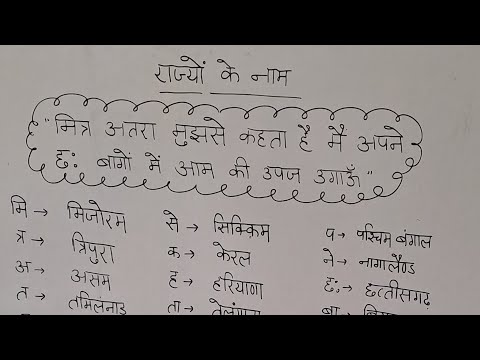 राज्यों के नाम
"मित्र अतरा मुझसे कहता है मैं अपने
छः बागों में आम की उपज उगाऊँ"
मि → मिजोरम से → सिक्किम प → पश्चिम बंगाल
त्र → त्रिपुरा क → केरल ने → नागालैण्ड
अ → असम ह → हरियाणा छः → छत्तीसगढ़
त → तमिलनाडु ता → तेलंगाना बा →